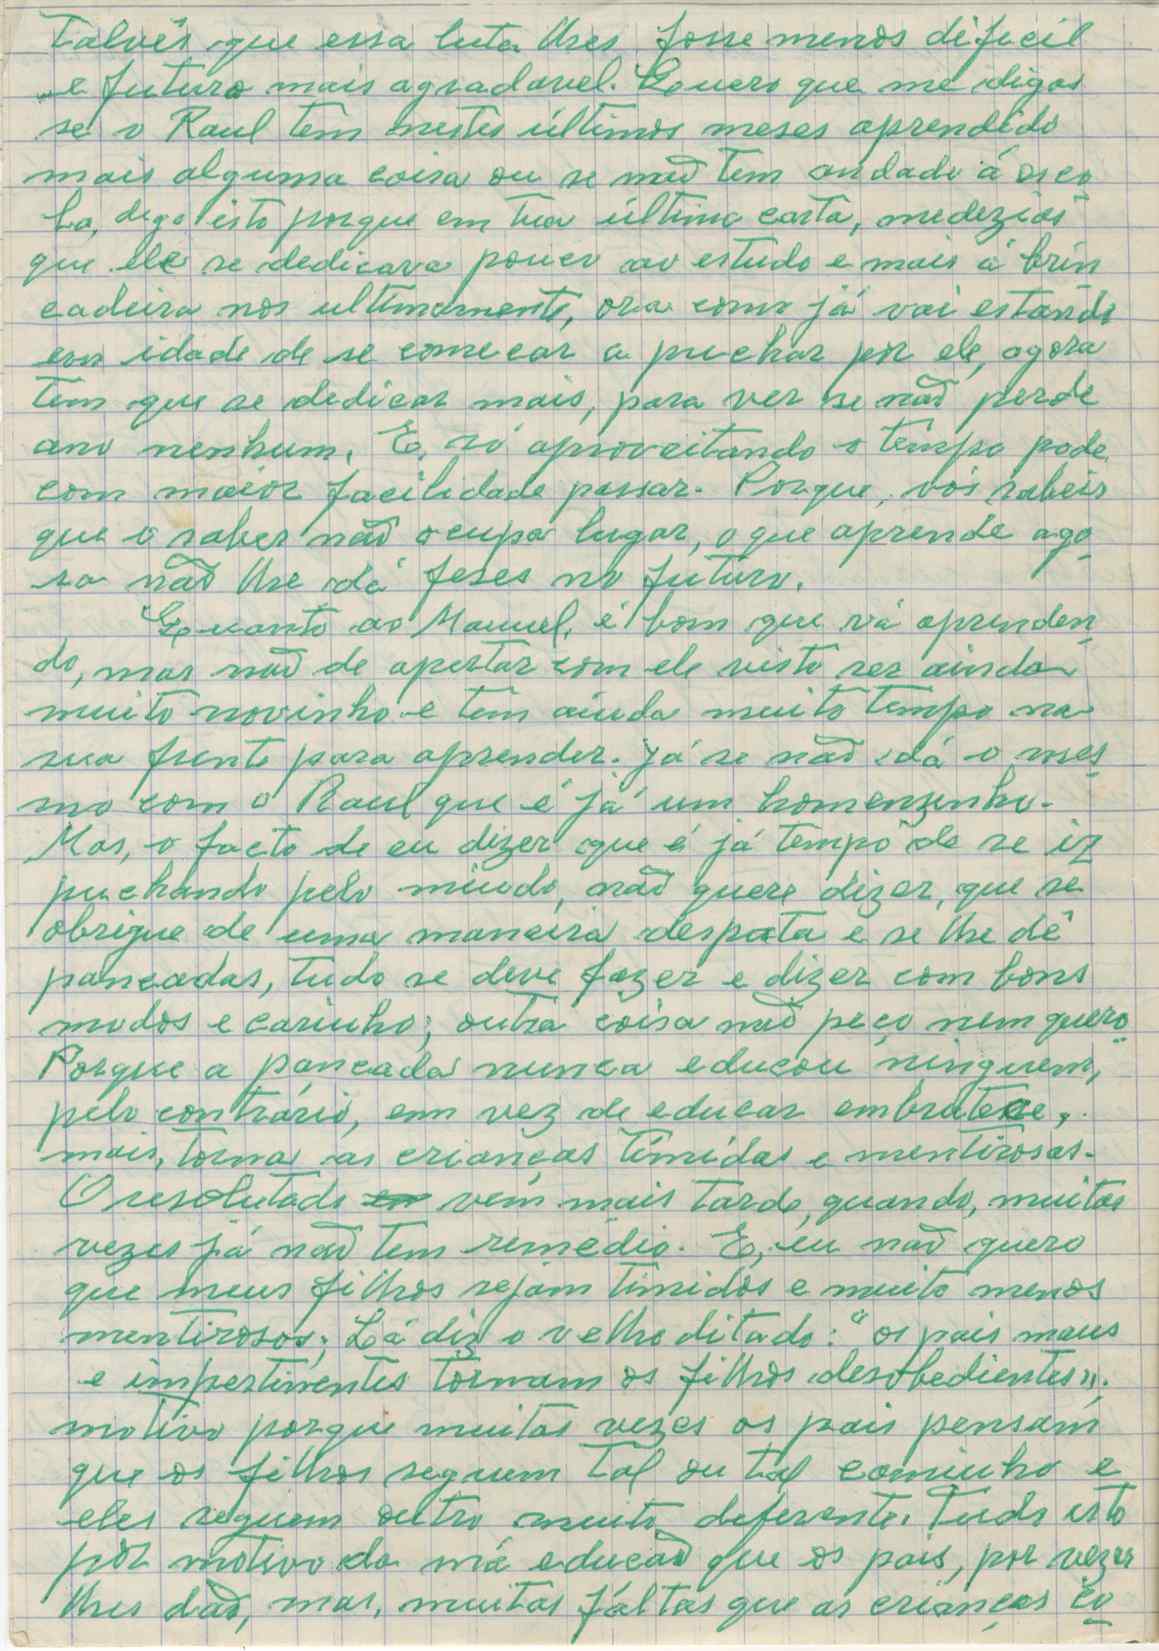 Talvês que essa luta lhes fosse menos dificil
e futuro mais agradavel. Quero que me digas
se o Raul têm nestes últimos meses aprendido
mais alguma coisa ou se não tem andado á esco
la, digo isto porque em tua última carta, medezias
que ele se dedicava pouco ao estudo e mais á brin
cadeira nos ultimamente, ora como já vai estando
em idade de se começar a puchar por ele, agora
tem que se dedicar mais, para ver se não perde
ano nenhum. E, só aproveitando o tempo pode
com maior facilidade passar. Porque, vós sabeis
que o saber não ocupa lugar, o que aprende ago-
ra não lhe dá feses no futuro.
Quanto ao Manuel, é bom que vá aprenden-
do, mas não de apertar com ele visto ser ainda
muito novinho e têm ainda muito tempo na
sua frente para aprender. Já se não dá o mes-
mo com o Raul que é já um homenzinho.
Mas, o facto de eu dizer que é já tempo de se ir
puchando pelo miúdo, não quere dizer, que se
obrigue de uma maneira despota e se lhe dê
pancadas, tudo se deve fazer e dizer com bons
modos e carinho; outra coisa não peço nem quero
Porque a pancada nunca educou ninguem,
pelo contrário, em vez de educar embrutece,
mais, torna as crianças tímidas e mentirosas.
O resolutado vem mais tarde, quando, muitas
vezes já não tem remédio. E, eu não quero
que meus filhos sejam tímidos e muito menos
mentirosos; Lá diz o velho ditado: "os pais maus
e impertinentes tornam os filhos desobedientes";
motivo porque muitas vezes os pais pensam
que os filhos seguem tal ou tal caminho e
eles seguem outro muito deferente. Tudo isto
pôr motivo da má educação que os pais, por vezes
lhes dão, mas, muitas fáltas que as crianças co